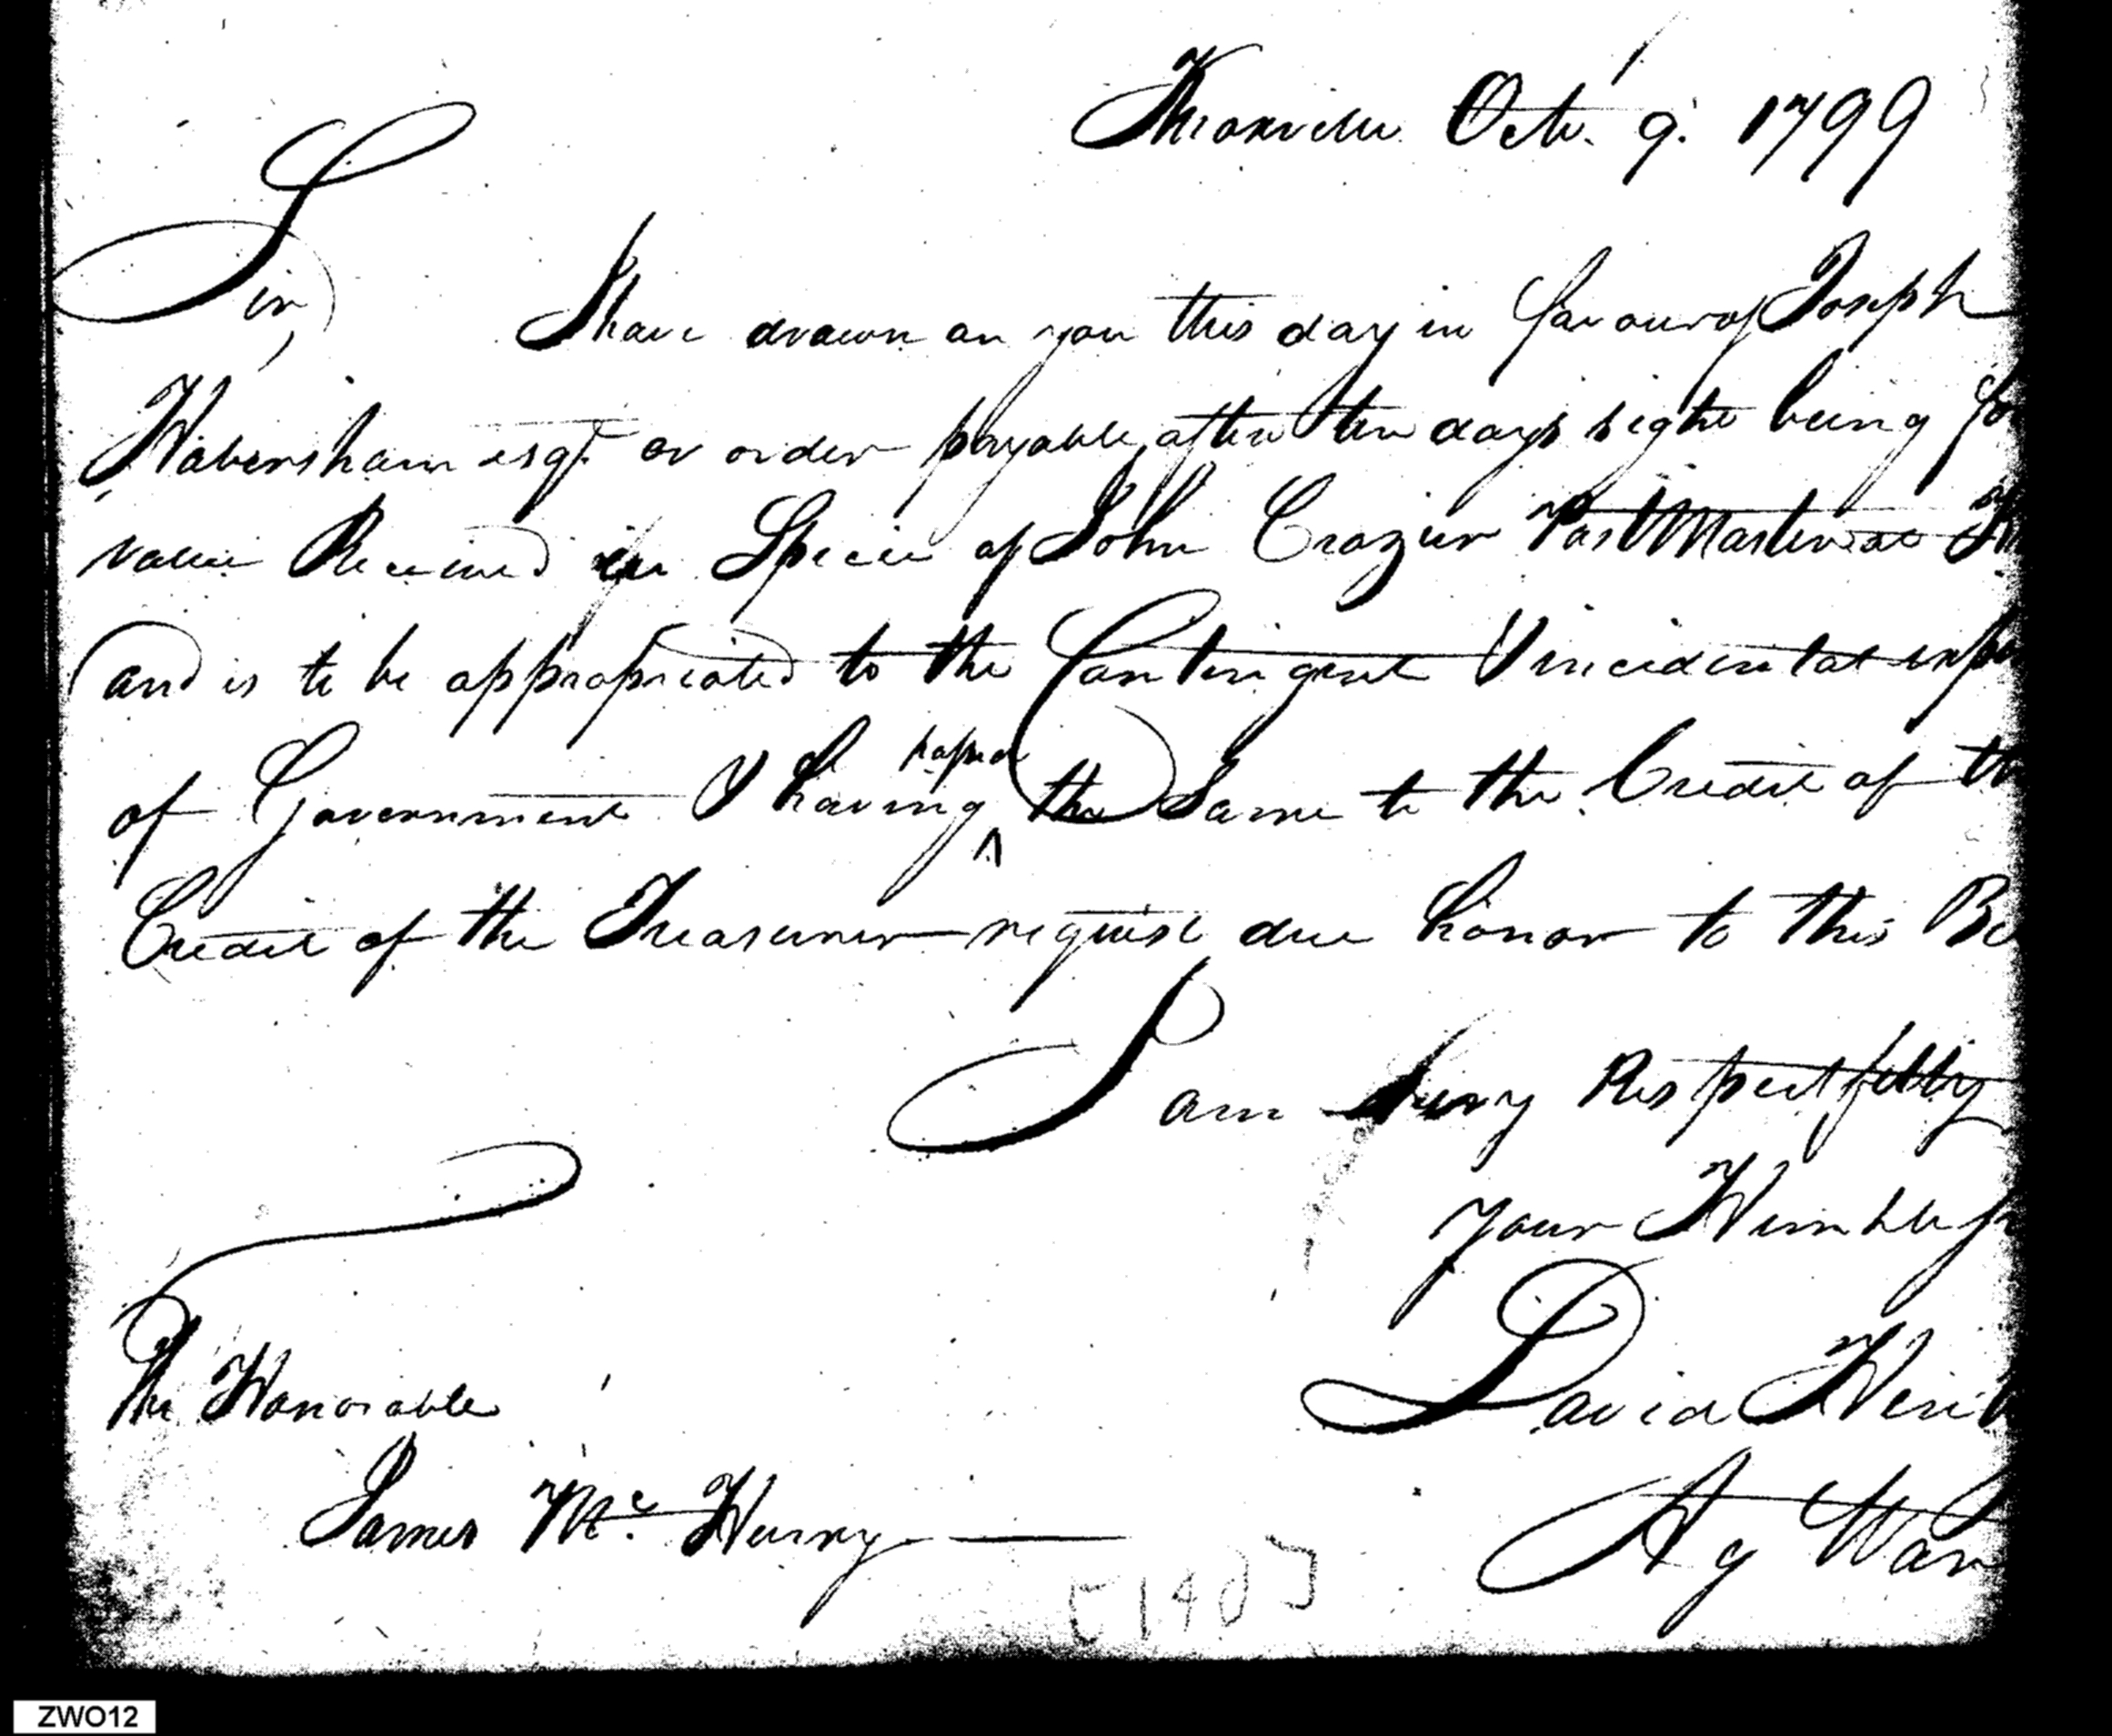 Knoxville Octr. 9. 1799
Sir,
I have drawn on you this day in favour of Joseph
Habersham esqr. or order payable after ten days sight being fo
value Received in Specie of John Crozier Post Master at Kn
and is to be appropriated to the Contingent & incidental expe
of Government & having passed the Same to the Credit of th
Credit of the Treasurer request due honor to this Bi
I am very Respectfully
your Humble
David Hen
The Honorable
James Mc. Henry
Ag War
[140]
ZWO12